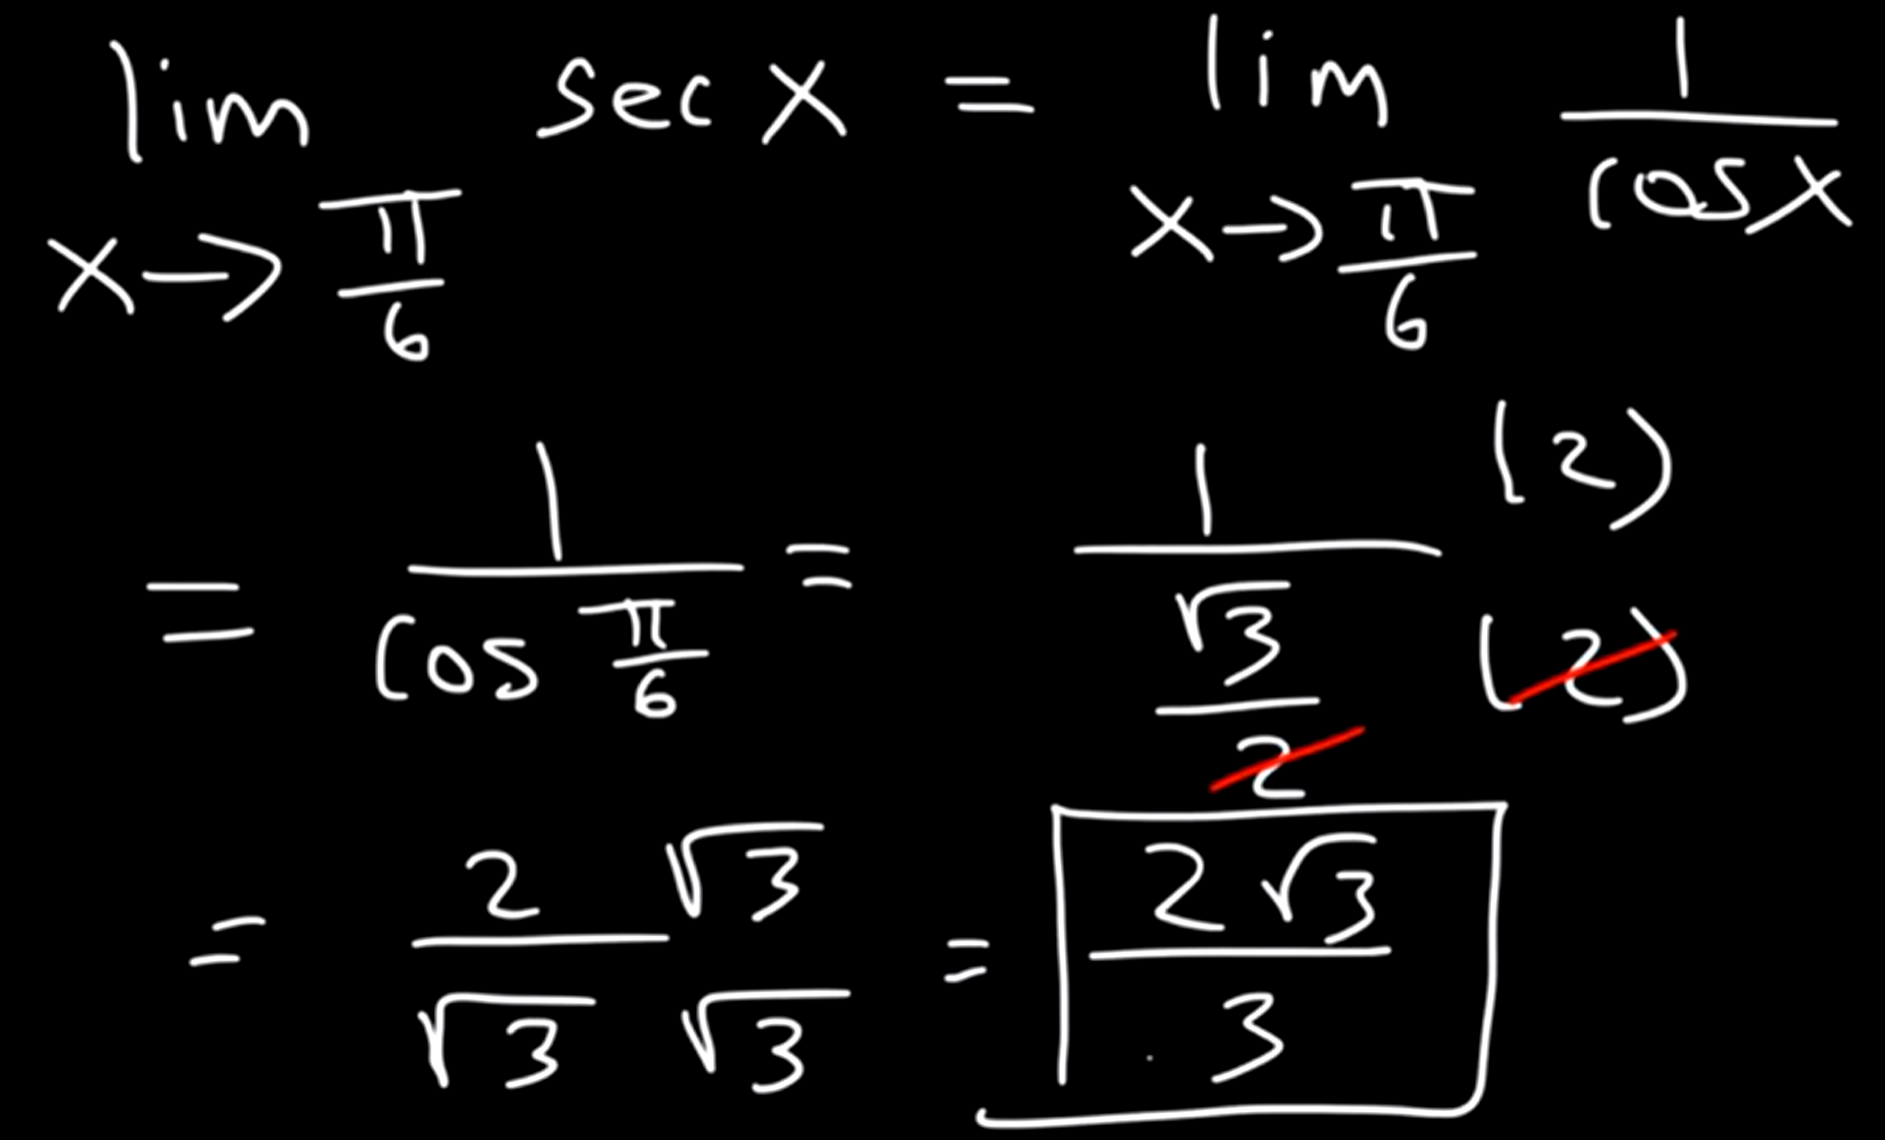 lim x→π/6 sec x = lim x→π/6 1/cos x
= 1/(cos π/6) = 1/(√3/2) (2)/(2)
= 2/√3 √3/√3 = 2√3/3